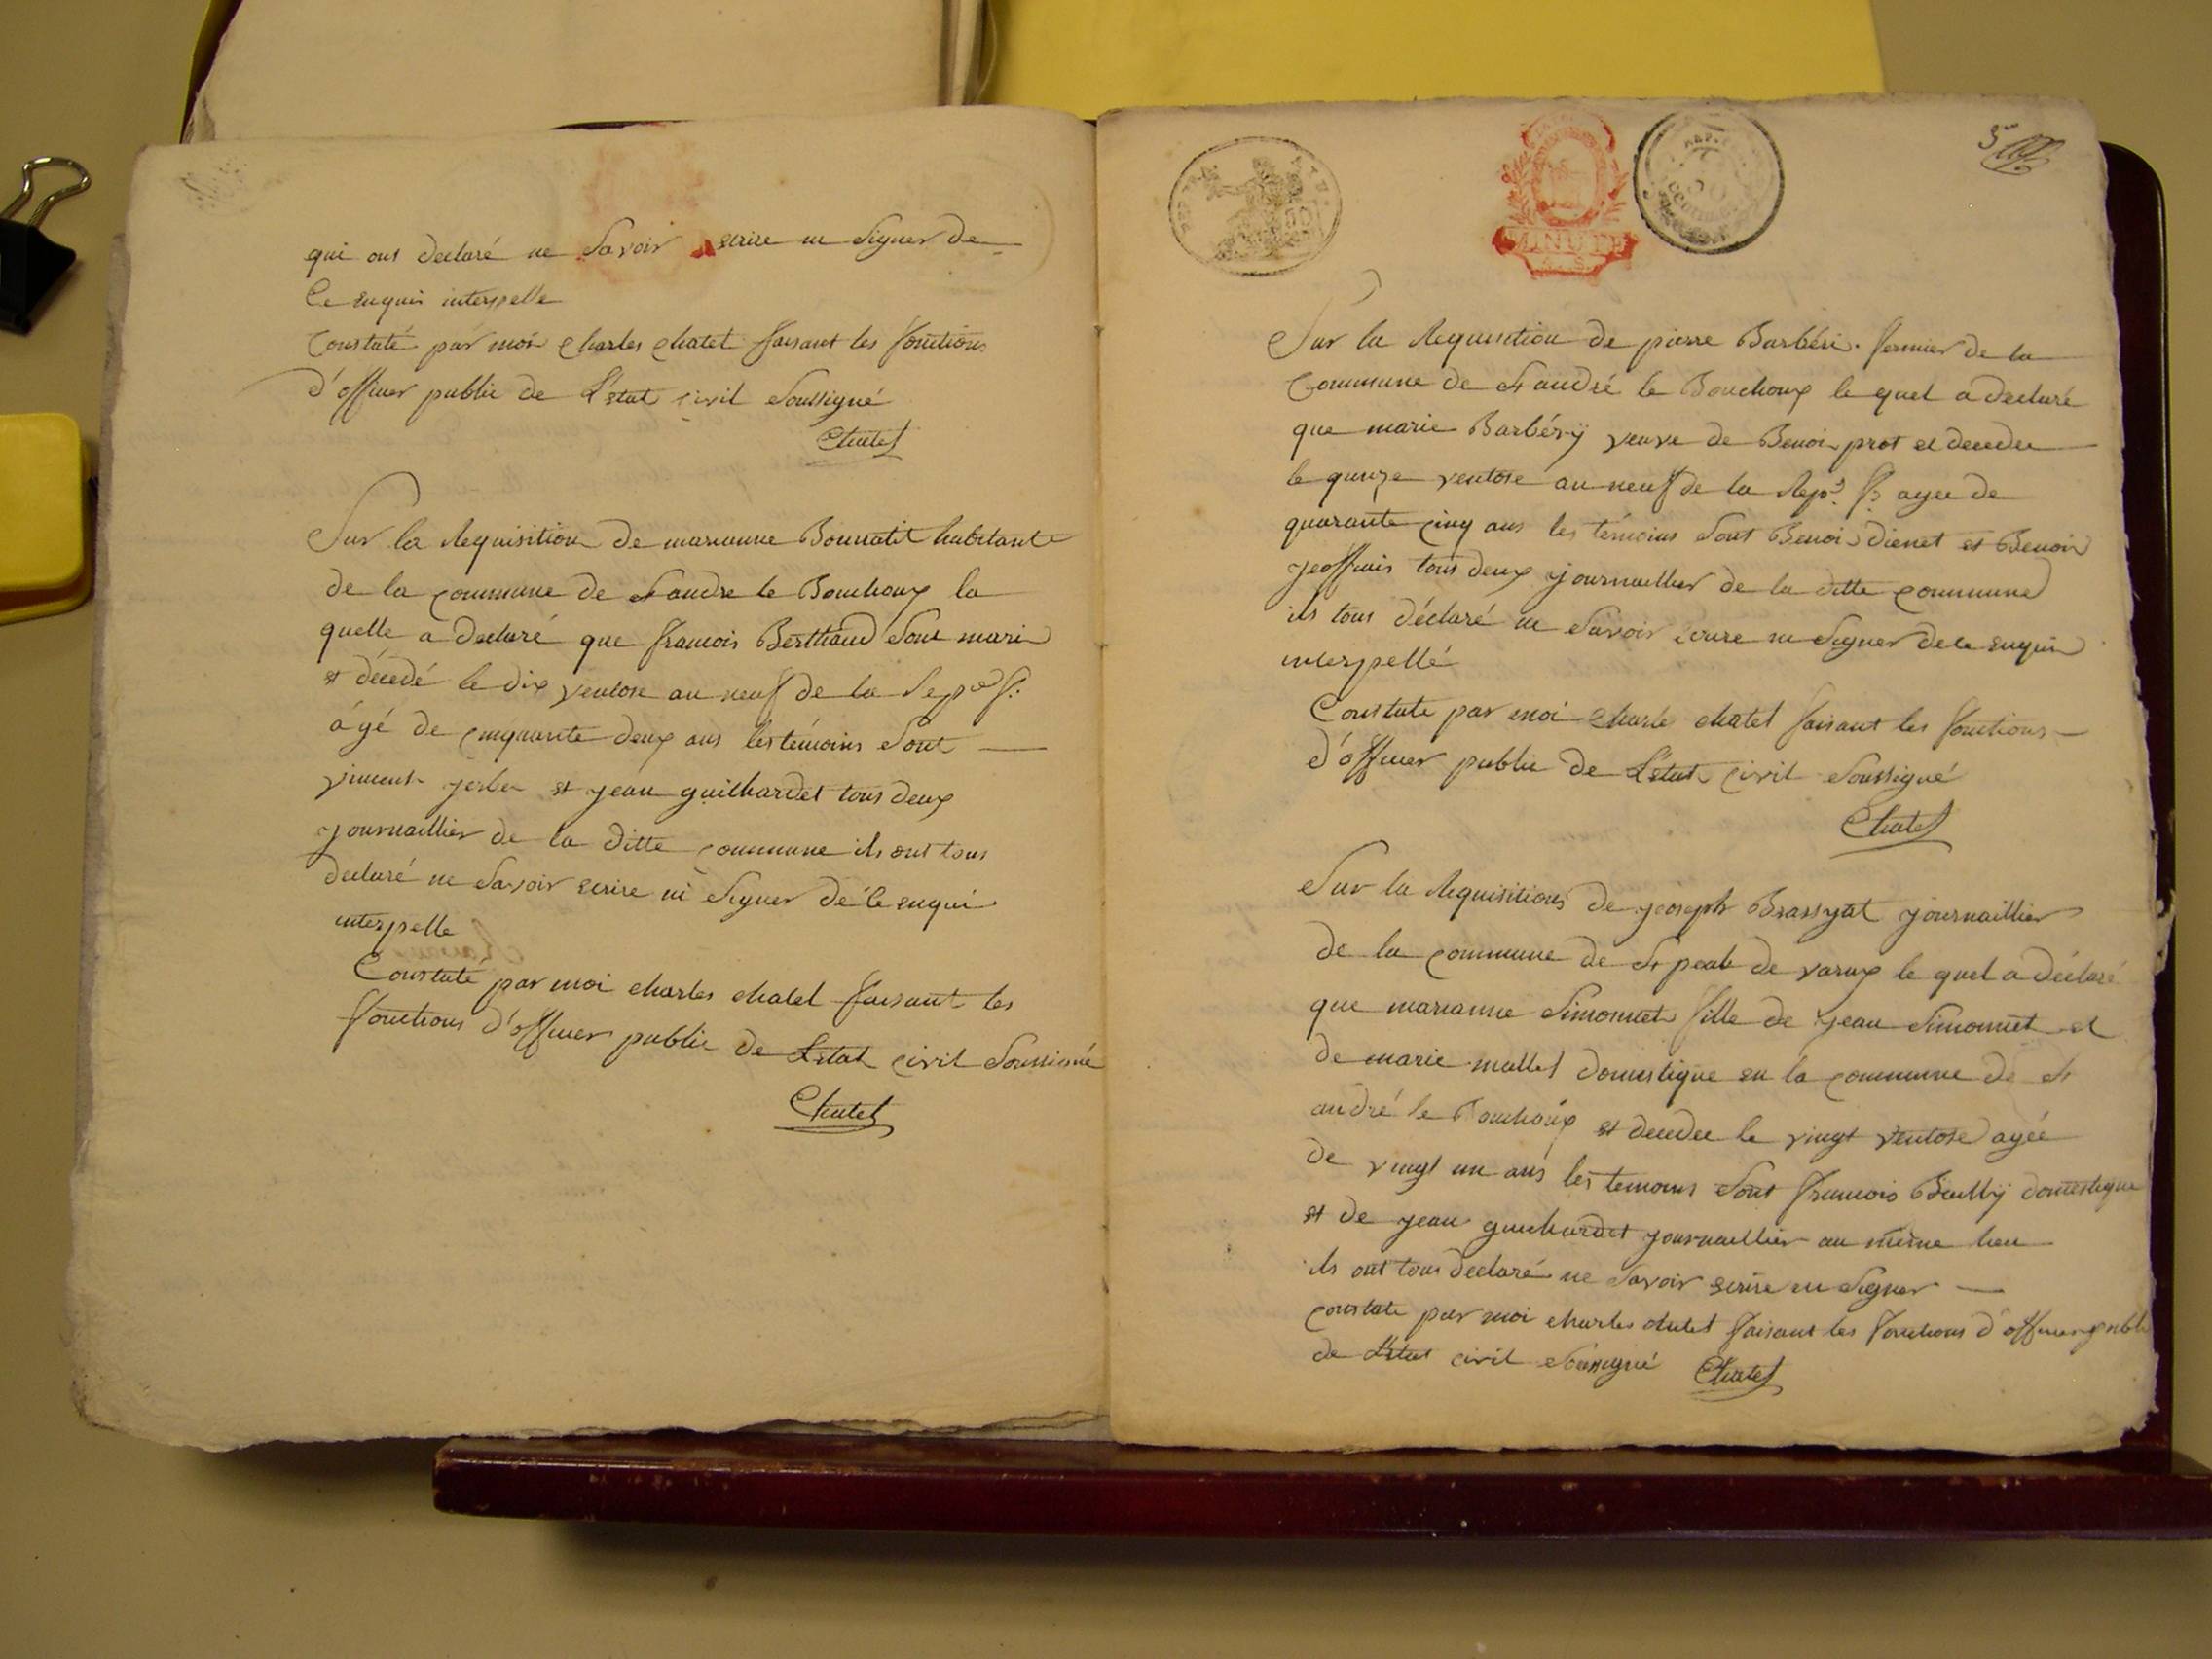 qui ont declaré ne Savoir ecrire ni Signer de
Ce enquis interpelle
Constaté par moi Charles Chatel faisant les fonctions
d'officier public de L'état civil Soussigné
Chatel
Sur la Requisition de marianne Bonnatit habitante
de la commune de St andre le Bouchoux la
quelle a declaré que francois Berthaud Son mari
est décédé le dix ventose an neuf de la Repe f.
âgé de cinquante deux ans les témoins Sont
vincent et jean guilhardet tous deux
journaillier de la ditte commune ils ont tous
declaré ne Savoir ecrire ni Signer de ce enqui
interpelle
Constaté par moi charles chatel faisant les
fonctions d'officier public de L'état civil Soussigné
Chatel
5
MINUTE
Sur la Requisition de pierre Barbéri fermier de la
Commune de St andré le Bouchoux le quel a declaré
que marie Barbérÿ veuve de Benoi prot et decedee
le quinze ventose an neuf de la Repe f. agee de
quarante cinq ans les témoins Sont Benoi dienet et Benoir
jeoffrais tous deux journaillier de la ditte commune
ils tous déclaré ne Savoir ecrire ni Signer de ce enquis
interpellé
Constate par moi Charle chatel faisant les fonctions
d'officier public de L'état civil Soussigné
Chatel
Sur la Requisitions de joseph Brassyat journaillier
de la commune de St de varax le quel a déclaré
que marianne Simonnet fille de jean Simonnet et
de marie mallet domestique en la commune de St
andré le Bouchoux et decedee le vingt ventose agée
de vingt un ans les temoins Sont francois Baillÿ domestique
et de jean guichardet journaillier au même lieu
ils ont tous declaré ne Savoir ecrire ni Signer
constate par moi charles chatel faisant les fonctions d'officier public
de L'état civil Soussigné Chatel